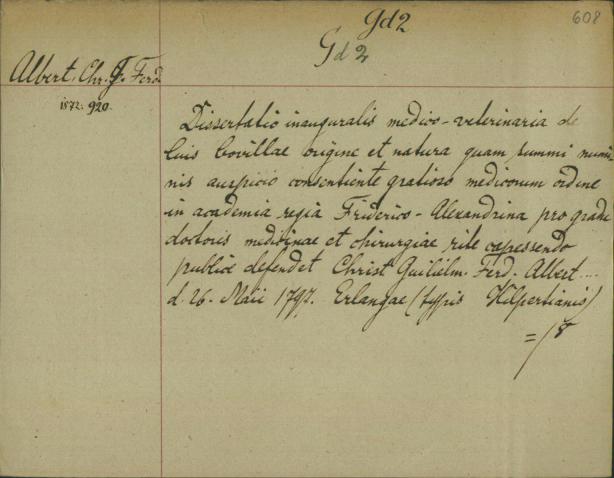 gd2
608
Gd2
Albert, Chr. F. Ferd.
1872. 920.
Dissertatio inauguralis medico-veterinaria de
luis bovillae origine et natura quam summi numi-
nis auspicio consentiente gratioso medicorum ordine
in academia regia Friderico-Alexandrina pro gradu
doctoris medicinae et chirurgiae rite capessendo
publice defendet Christ. Guilielm. Ferd. Albert....
d. 26. Maii 1797. Erlangae (typis Hilpertianis)
= / 8